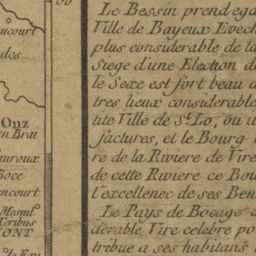 ucourt
des
Ouz
en Brai
auroux
Boce
encourt
Mesnil
Teribus
MONT
Le Bessin prend ega
Ville de Bayeux Evech
plus considerable de la
Siege d'une Election d
le Sexe est fort beau d
tres lieux considerable
tite Ville de St. Lo, ou u
factures, et le Bourg
re de la Riviere de Vire
de cette Riviere ce Bou
l'excellence de ses Ben
Le Pays de Bocage
derable, Vire celebre po
tribue a ses habitans